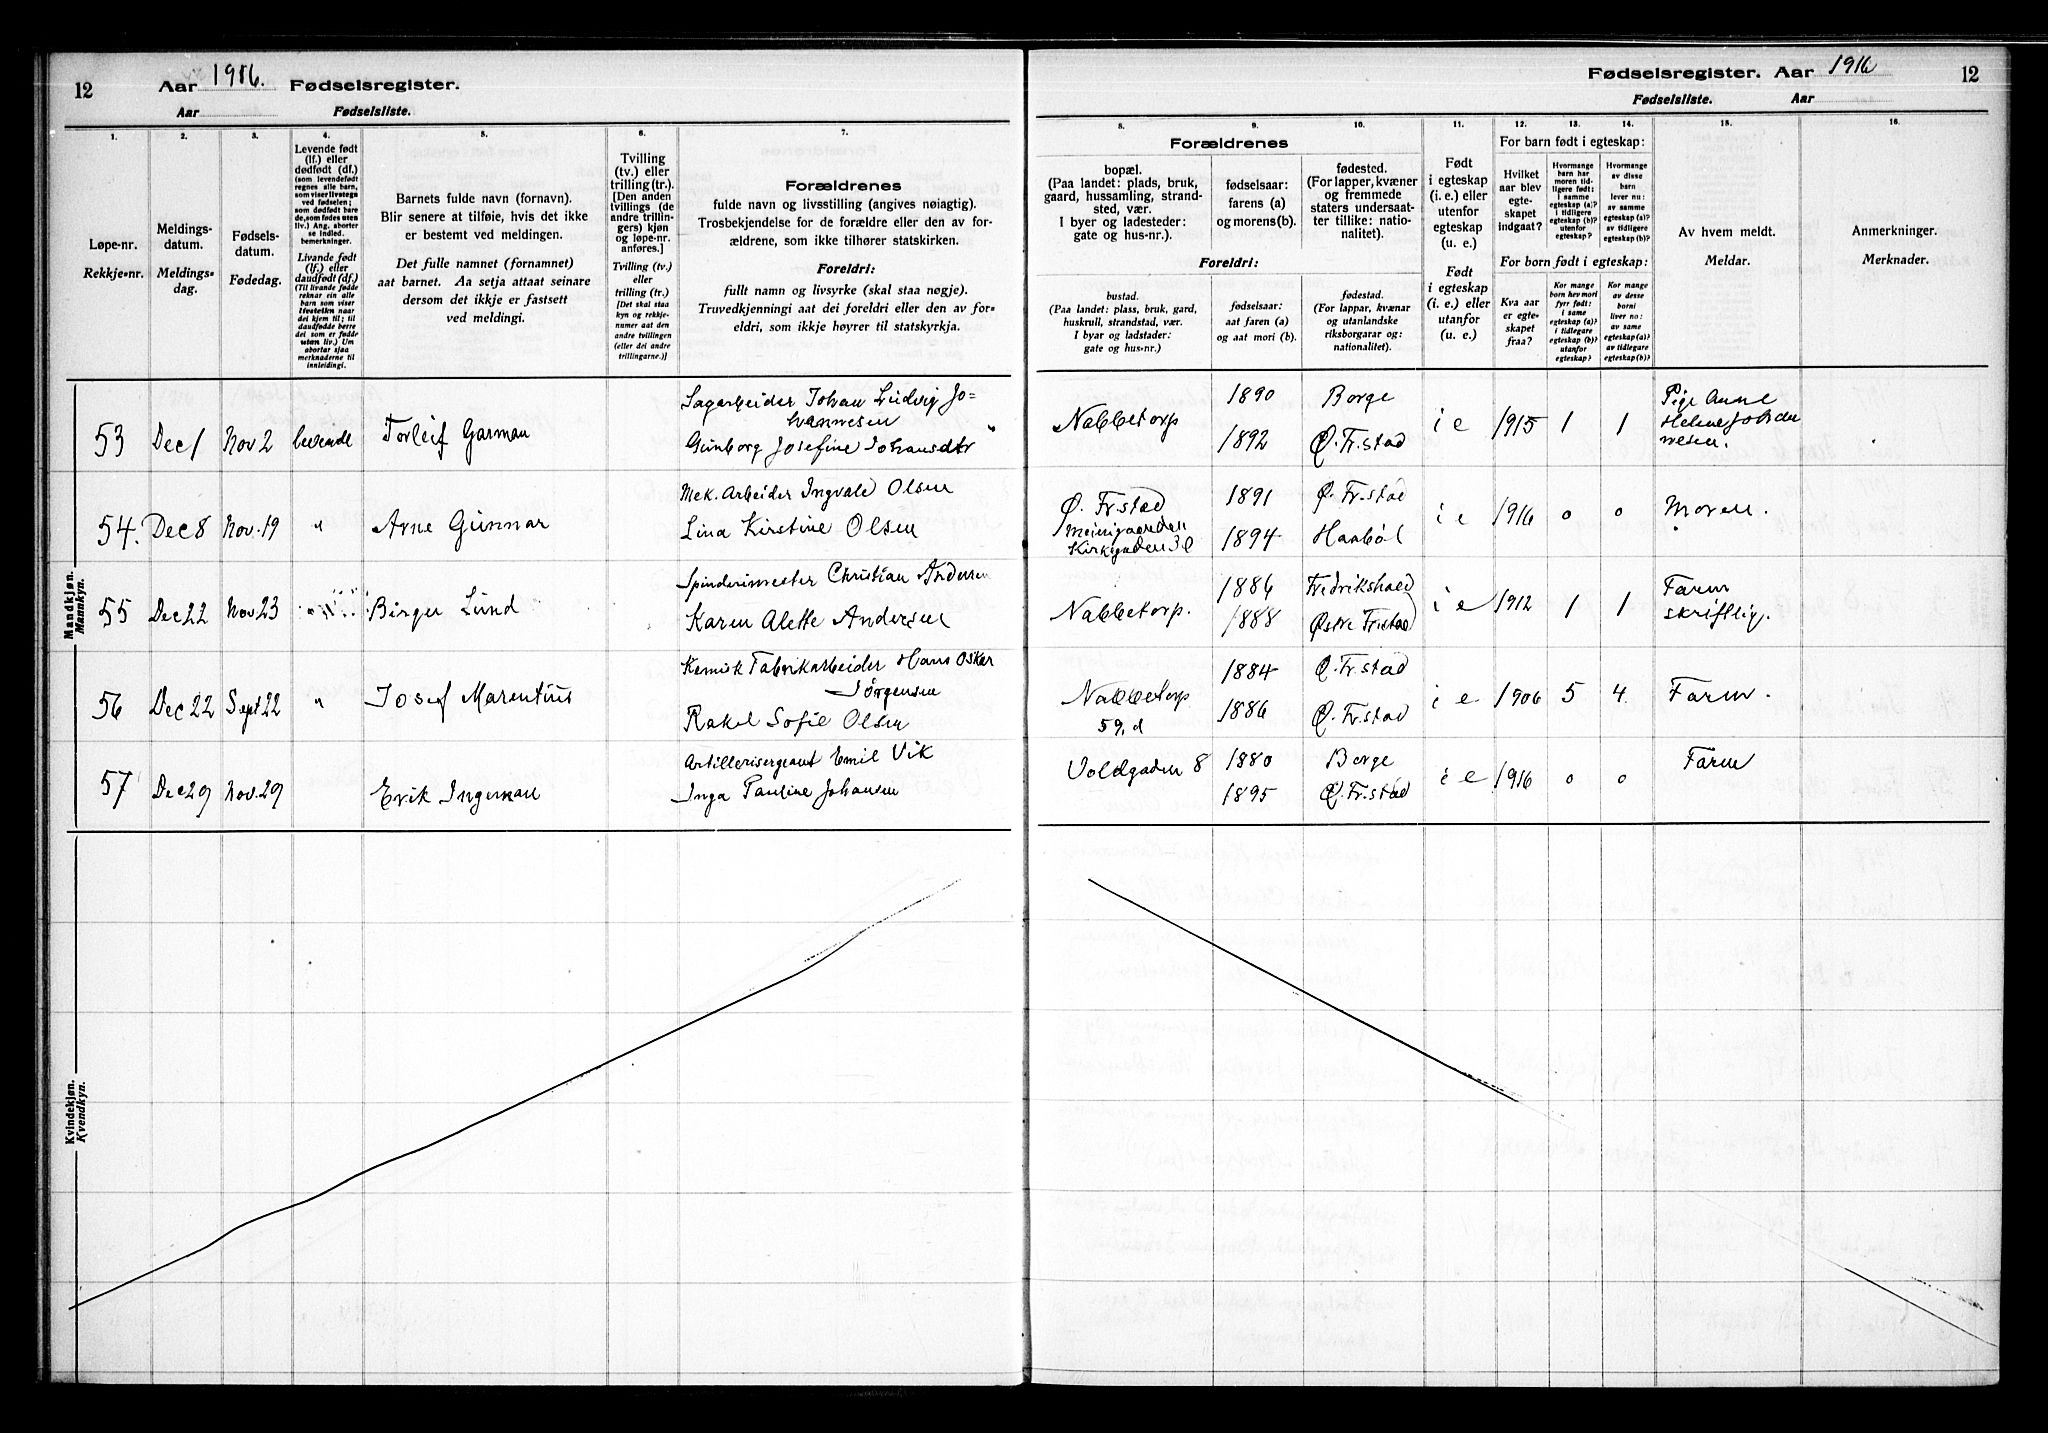 12
Aar 1916. Fødselsregister.
Aar Fødselsliste.
1.
2.
3.
4.
5.
6.
7.
Løpe-nr.
Rekkje-nr.
Meldings-
datum.
Meldings-
dag.
Fødsels-
datum.
Fødedag.
Levende født
(lf.) eller
dødfødt (df.)
(som levendefødt
regnes alle barn,
som viser livstegn
ved fødselen;
som dødfødt bare
de, som fødes uten
liv.) Ang. aborter
se indled.
bemerkninger.
Livande født
(lf.) eller
daudfødt (df.)
(Til livande fødde
reknar ein alle
barn som viser
livsteikn naar
dei kjem til; til
daudfødde berre
dei som er fødde
utan liv.) Um
abortar sjaa
merknaderne til
innleidingi.
Barnets fulde navn (fornavn).
Blir senere at tilføie, hvis det ikke
er bestemt ved meldingen.
Det fulle namnet (fornamnet)
aat barnet. Aa setja attaat seinare
dersom det ikkje er fastsett
ved meldingi.
Tvilling
(tv.) eller
trilling (tr.).
[Den anden
tvillings (de
andre trillin-
gers) kjøn
og løpe-nr.
anføres.]
Tvilling (tv.)
eller
trilling (tr.)
[Det skal staa
kyn og rekkje-
numer aat den
andre tvillingen
(eller dei andre
trillingarne.)]
Forældrenes
fulde navn og livsstilling (angives nøiagtig).
Trosbekjendelse for de forældre eller den av for-
ældrene, som ikke tilhører statskirken.
Foreldri:
fullt namn og livsyrke (skal staa nøgje).
Truvedkjenningi aat dei foreldri eller den av for-
eldri, som ikkje høyrer til statskyrkja.
Mandkjøn.
Mannkyn.
53 Dec 1 Nov 2 levende Torleif Garman
Sagarbeider Johan Ludvig Jo-
hannesen
Gunborg Josefine Johansdtr
54. Dec 8 Nov. 19 " Arne Gunnar
Mek. Arbeider Ingvald Olsen
Lina Kirstine Olsen
55 Dec 22 Nov 23 Birger Lund
Spinderimester Christian Andersen
Karen Alette Andersen
56 Dec 22 Sept 22 " Josef Marentius
Kemisk Fabrikarbeider Hans Oskar
Jörgensen
Rakel Sofie Olsen
57 Dec 29 Nov. 29 Erik Ingeman
Artillerisergeant Emil Vik
Inga Pauline Johansen
Kvindekjøn.
Kvendkyn.
Fødselsregister. Aar 1916 12
Fødselsliste. Aar
8.
9.
10.
11.
12.
13.
14.
15.
16.
Forældrenes
bopæl.
(Paa landet: plads, bruk,
gaard, hussamling, strand-
sted, vær.
I byer og ladesteder:
gate og hus-nr.).
fødselsaar:
farens (a)
og morens (b).
fødested.
(For lapper, kvæner
og fremmede
staters undersaat-
ter tillike: natio-
nalitet).
Foreldri:
bustad.
(Paa landet: plass, bruk, gard,
huskrull, strandstad, vær.
I byar og ladstader:
gate og hus-nr.)
fødselsaar:
aat faren (a)
og aat mori (b).
fødestad.
(For lappar, kvænar
og utanlandske
riksborgarar og:
nationalitet).
Født
i egteskap
(i. e.) eller
utenfor
egteskap
(u. e.)
Født
i egteskap
(i. e.) eller
utanfor
(u. e.)
For barn født i egteskap:
Hvilket
aar blev
egte-
skapet
indgaat?
Hvormange
barn har
moren tid-
ligere født:
i samme
egteskap (a)?
i tidligere
egteskap (b)?
utenfor
egteskap?
Hvormange
av disse
barn
lever nu:
av samme
egteskap (a)?
av tidligere
egteskap (b)?
For born født i egteskap:
Kva aar
er egte-
skapet
fraa?
Kor mange
born hev mori
fyrr født:
i same
egteskap (a)?
i tidlegare
egteskap (b)?
utanfor
egteskap?
Kor mange
av desse
borni
liver no:
av same
egteskap (a)?
av tidlegare
egteskap (b)?
Av hvem meldt.
Meldar.
Anmerkninger.
Merknader.
Nabbetorp 1890 Borge
1892 Ø. Fr.stad
i e 1915 1 1
Pige Anne
Helene Johan
nesen.
Ø. Fr.stad
Meiergaarden
Kirkegaden 38
1891 Ø. Fr.stad
1894 Haabøl
i e 1916 0 0 Moren.
Nabbetorp. 1886 Fredrikshald
1888 Østre Fr.stad
i e 1912 1 1
Faren
skriftlig.
Nabbetorp
59, d
1884 Ø. Fr.stad
1886 Ø. Fr.stad
i e 1906 5 4. Faren.
Voldgaden 8 1880 Borge
1895 Ø. Fr.stad
i e 1916 0 0 Faren